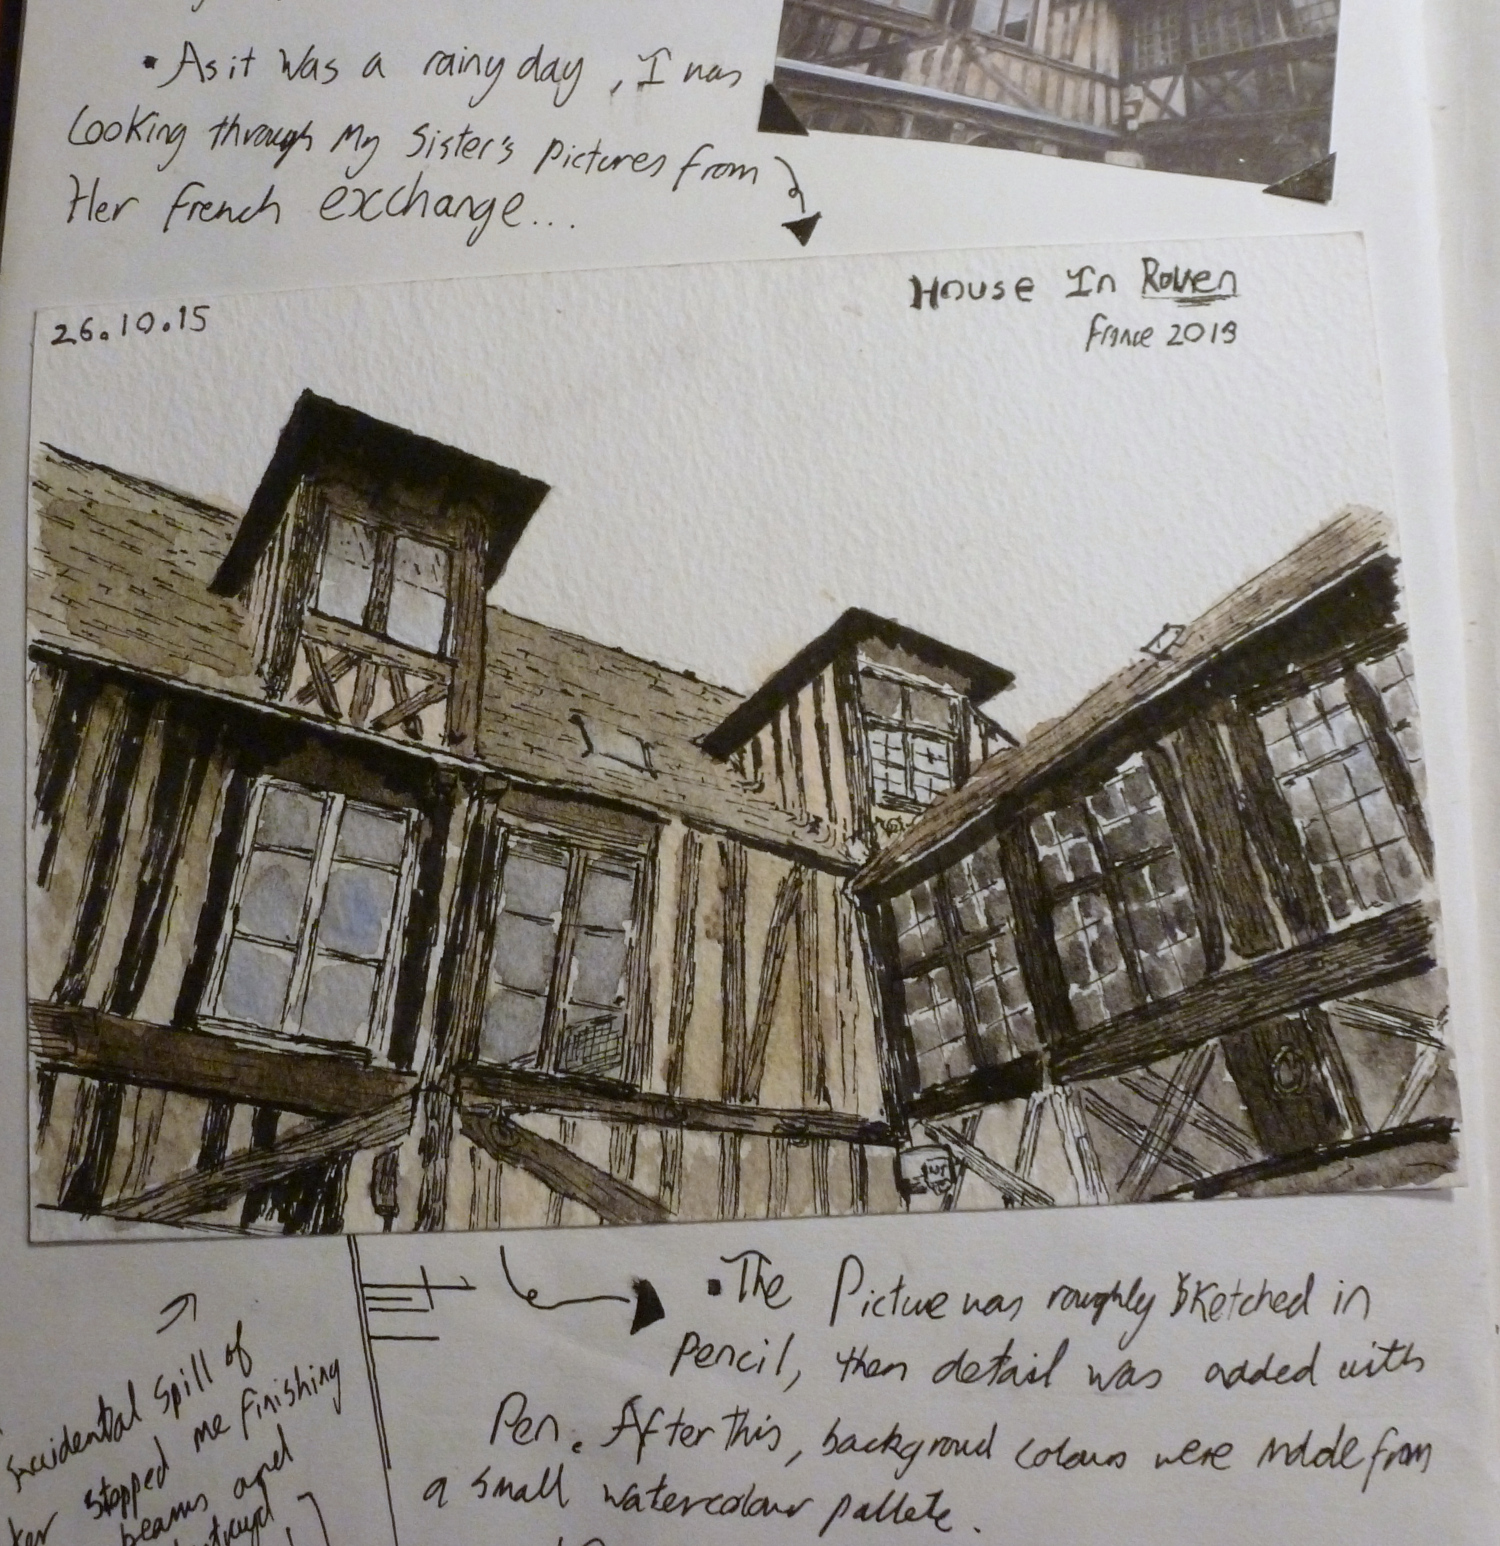 ▪ As it was a rainy day, I was
Looking through My Sister's Pictures from
Her French exchange...
26.10.15
House In Rouen
France 2013
▪ The Picture was roughly sketched in
Pencil, then detail was added with
Pen. After this, backgroud colours were made from
a small watercolour pallete.
Accidental spill of
stopped me finishing
beams and